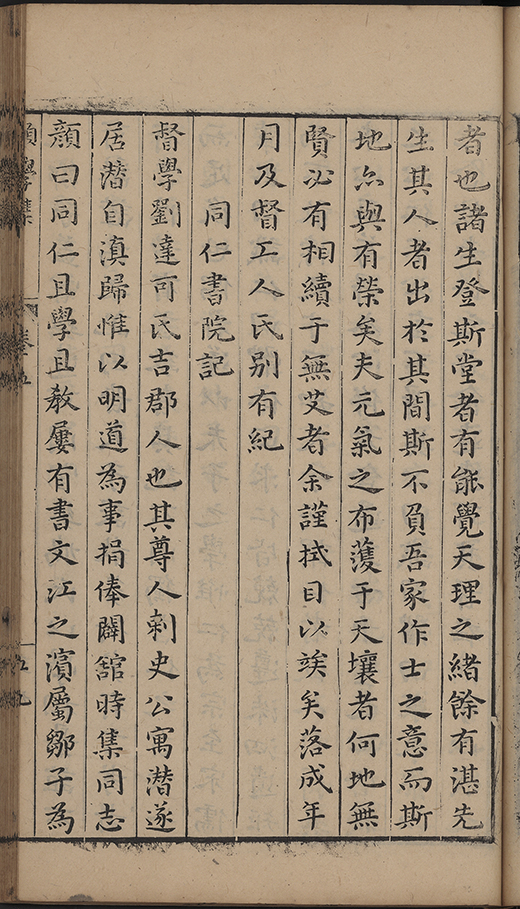 者也諸生登斯堂者有能覺天理之緒餘有湛先
生其人者出於其間斯不負吾家作士之意而斯
地亦與有榮矣夫元氣之布濩于天壤者何地無
賢必有相續于無艾者余謹拭目以竢矣落成年
月及督工人氏別有紀
同仁書院記
督學劉達可氏吉郡人也其尊人刺史公寓潛遂
居潛自滇歸惟以明道為事捐俸闢舘時集同志
顏曰同仁且學且教屢有書文江之濱屬鄒子為
願學集
卷五
五九